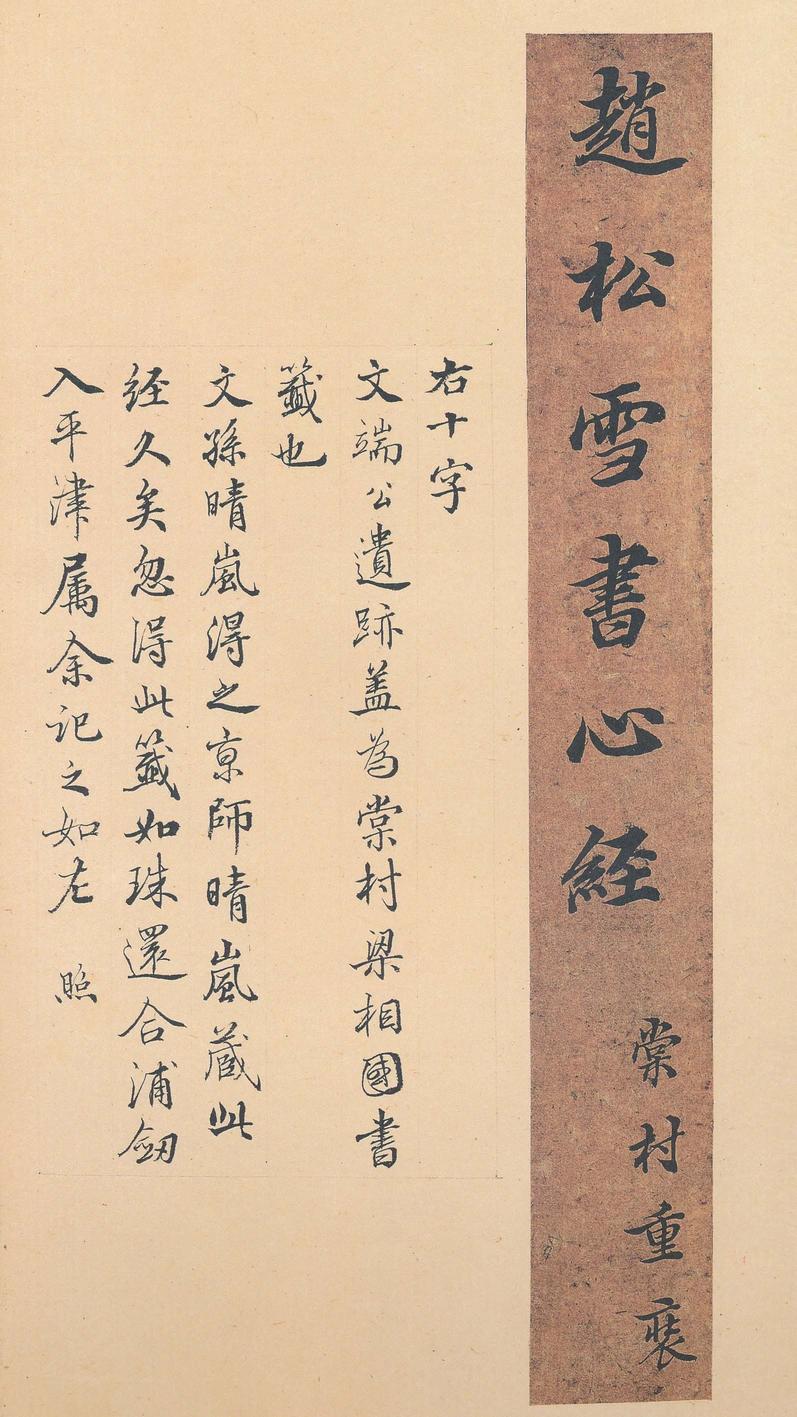 趙松雪書心経 棠村重裝
右十字
文端公遺跡蓋為棠村梁相國書
籤也
文孫晴嵐得之京師晴嵐蔵此
経久矣忽得此籤如珠還合浦劔
入平津属余記之如左 照